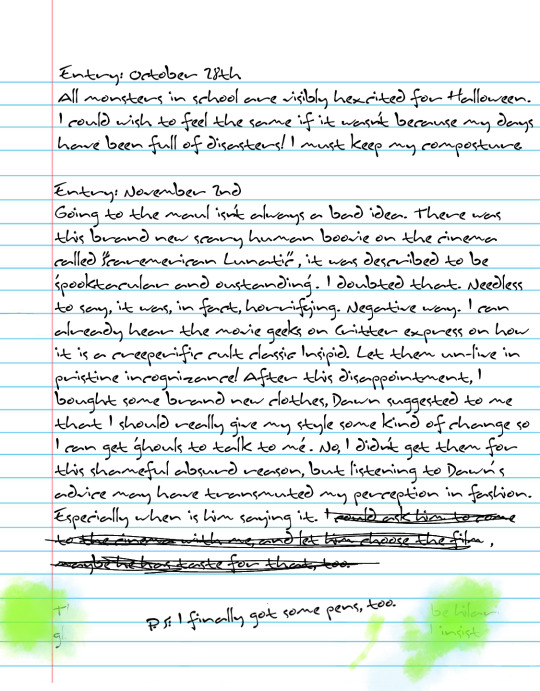 Entry: October 28th
All monsters in school are visibly hexcited for Halloween.
I could wish to feel the same if it wasn't because my days
have been full of disasters! I must keep my composture
Entry: November 2nd
Going to the maul isn't always a bad idea. There was
this brand new scary human boovie on the cinema
called "Scaremerican Lunatic", it was described to be
'spooktacular and oustanding'. I doubted that. Needless
to say, it was, in fact, horrifying. Negative way. I can
already hear the movie geeks on Critter express on how
it is a creeperific cult classic Insipid. Let them un-live in
pristine incognizance! After this disappointment, I
bought some brand new clothes, Dawn suggested to me
that I should really give my style some kind of change so
I can get 'ghouls to talk to me'. No, I didn't get them for
this shameful absurd reason, but listening to Dawn's
advice may have transmuted my perception in fashion.
Especially when is him saying it. I could ask him to come
to the cinema with me, and let him choose the film,
maybe he has taste for that, too.
P.S: I finally got some pens, too.
be hilar
I insist